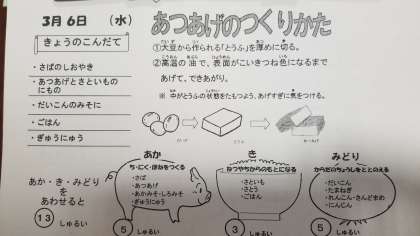 3月6日 (水)
きょうのこんだて
・さばのしおやき
・あつあげとさといもの
にもの
・だいこんのみそに
・ごはん
・ぎゅうにゅう
あつあげのつくりかた
①大豆から作られる「とうふ」を厚めに切る。
②高温の油で、表面がこいきつね色になるまで
あげて、できあがり。
※ 中がとうふの状態をたもつよう、あげすぎに気をつける。
だいず
とうふ
あつあげ
あか・き・みどり
を
あわせると
13 しゅるい
あか
ち・にく・ほねをつくる
・さば
・あつあげ
・あかみそ・しろみそ
・ぎゅうにゅう
5 しゅるい
き
ねつやちからのもとになる
・さといも
・さとう
・ごはん
3 しゅるい
みどり
からだのちょうしをととのえる
・だいこん
・たまねぎ
・れんこん・さんどまめ
・にんじん
5 しゅるい